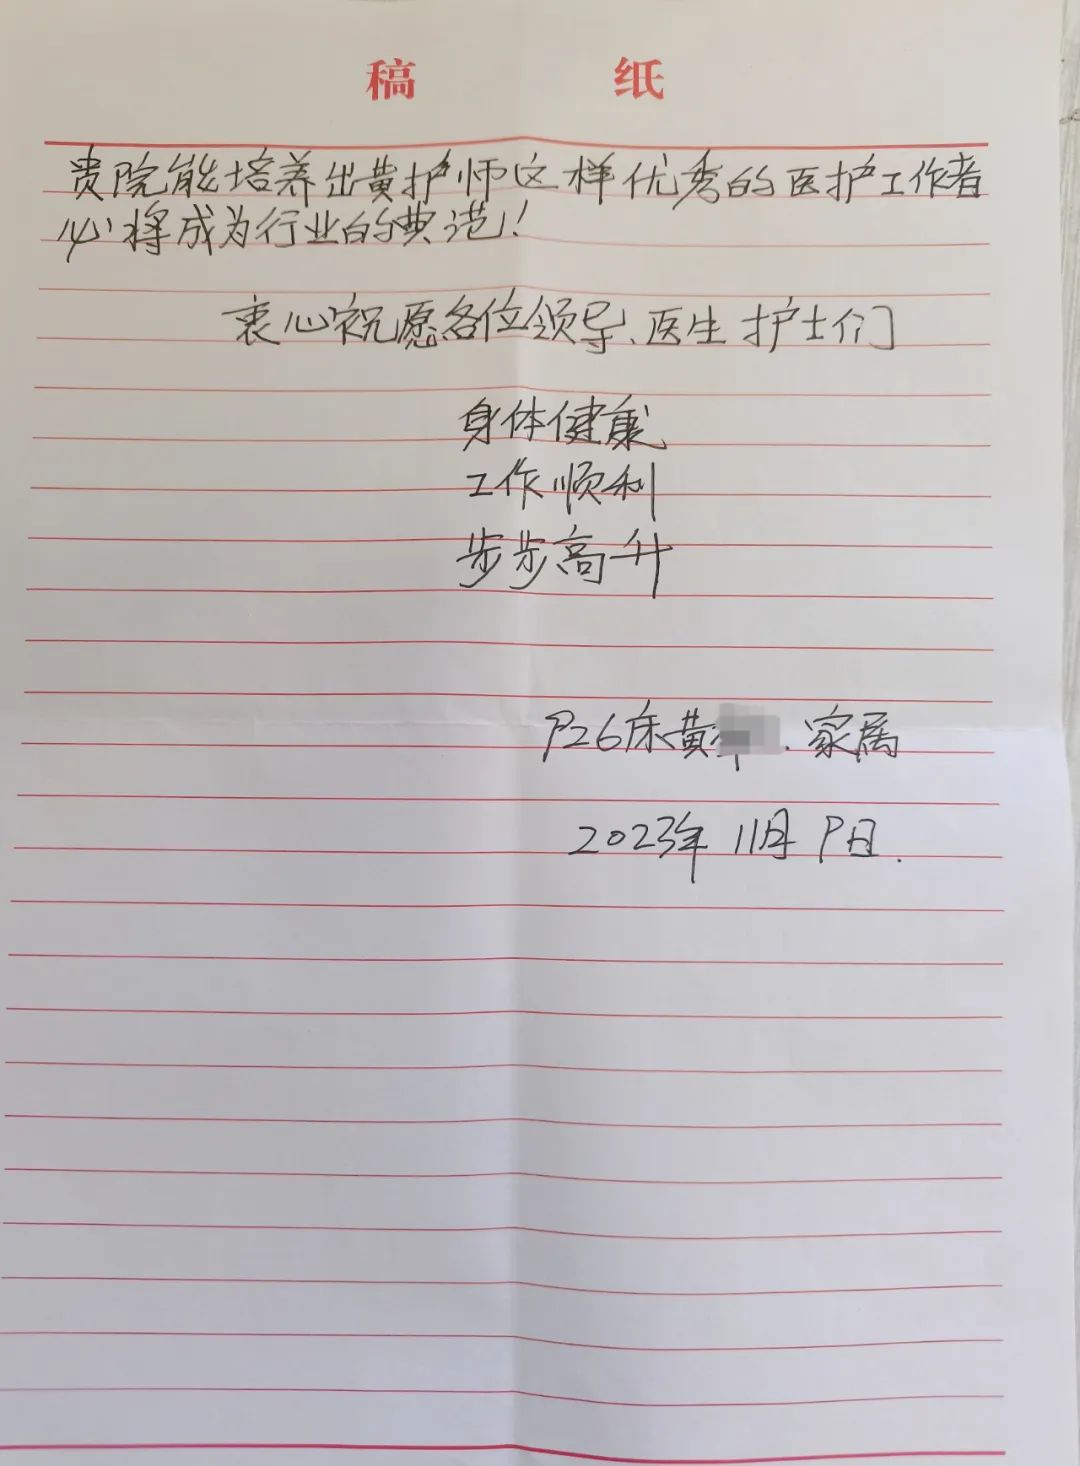 稿 纸
贵院能培养出黄护师这样优秀的医护工作者
必将成为行业的典范!
衷心祝愿各位领导、医生护士们
身体健康
工作顺利
步步高升
P26床黄 . 家属
2023年11月9日.